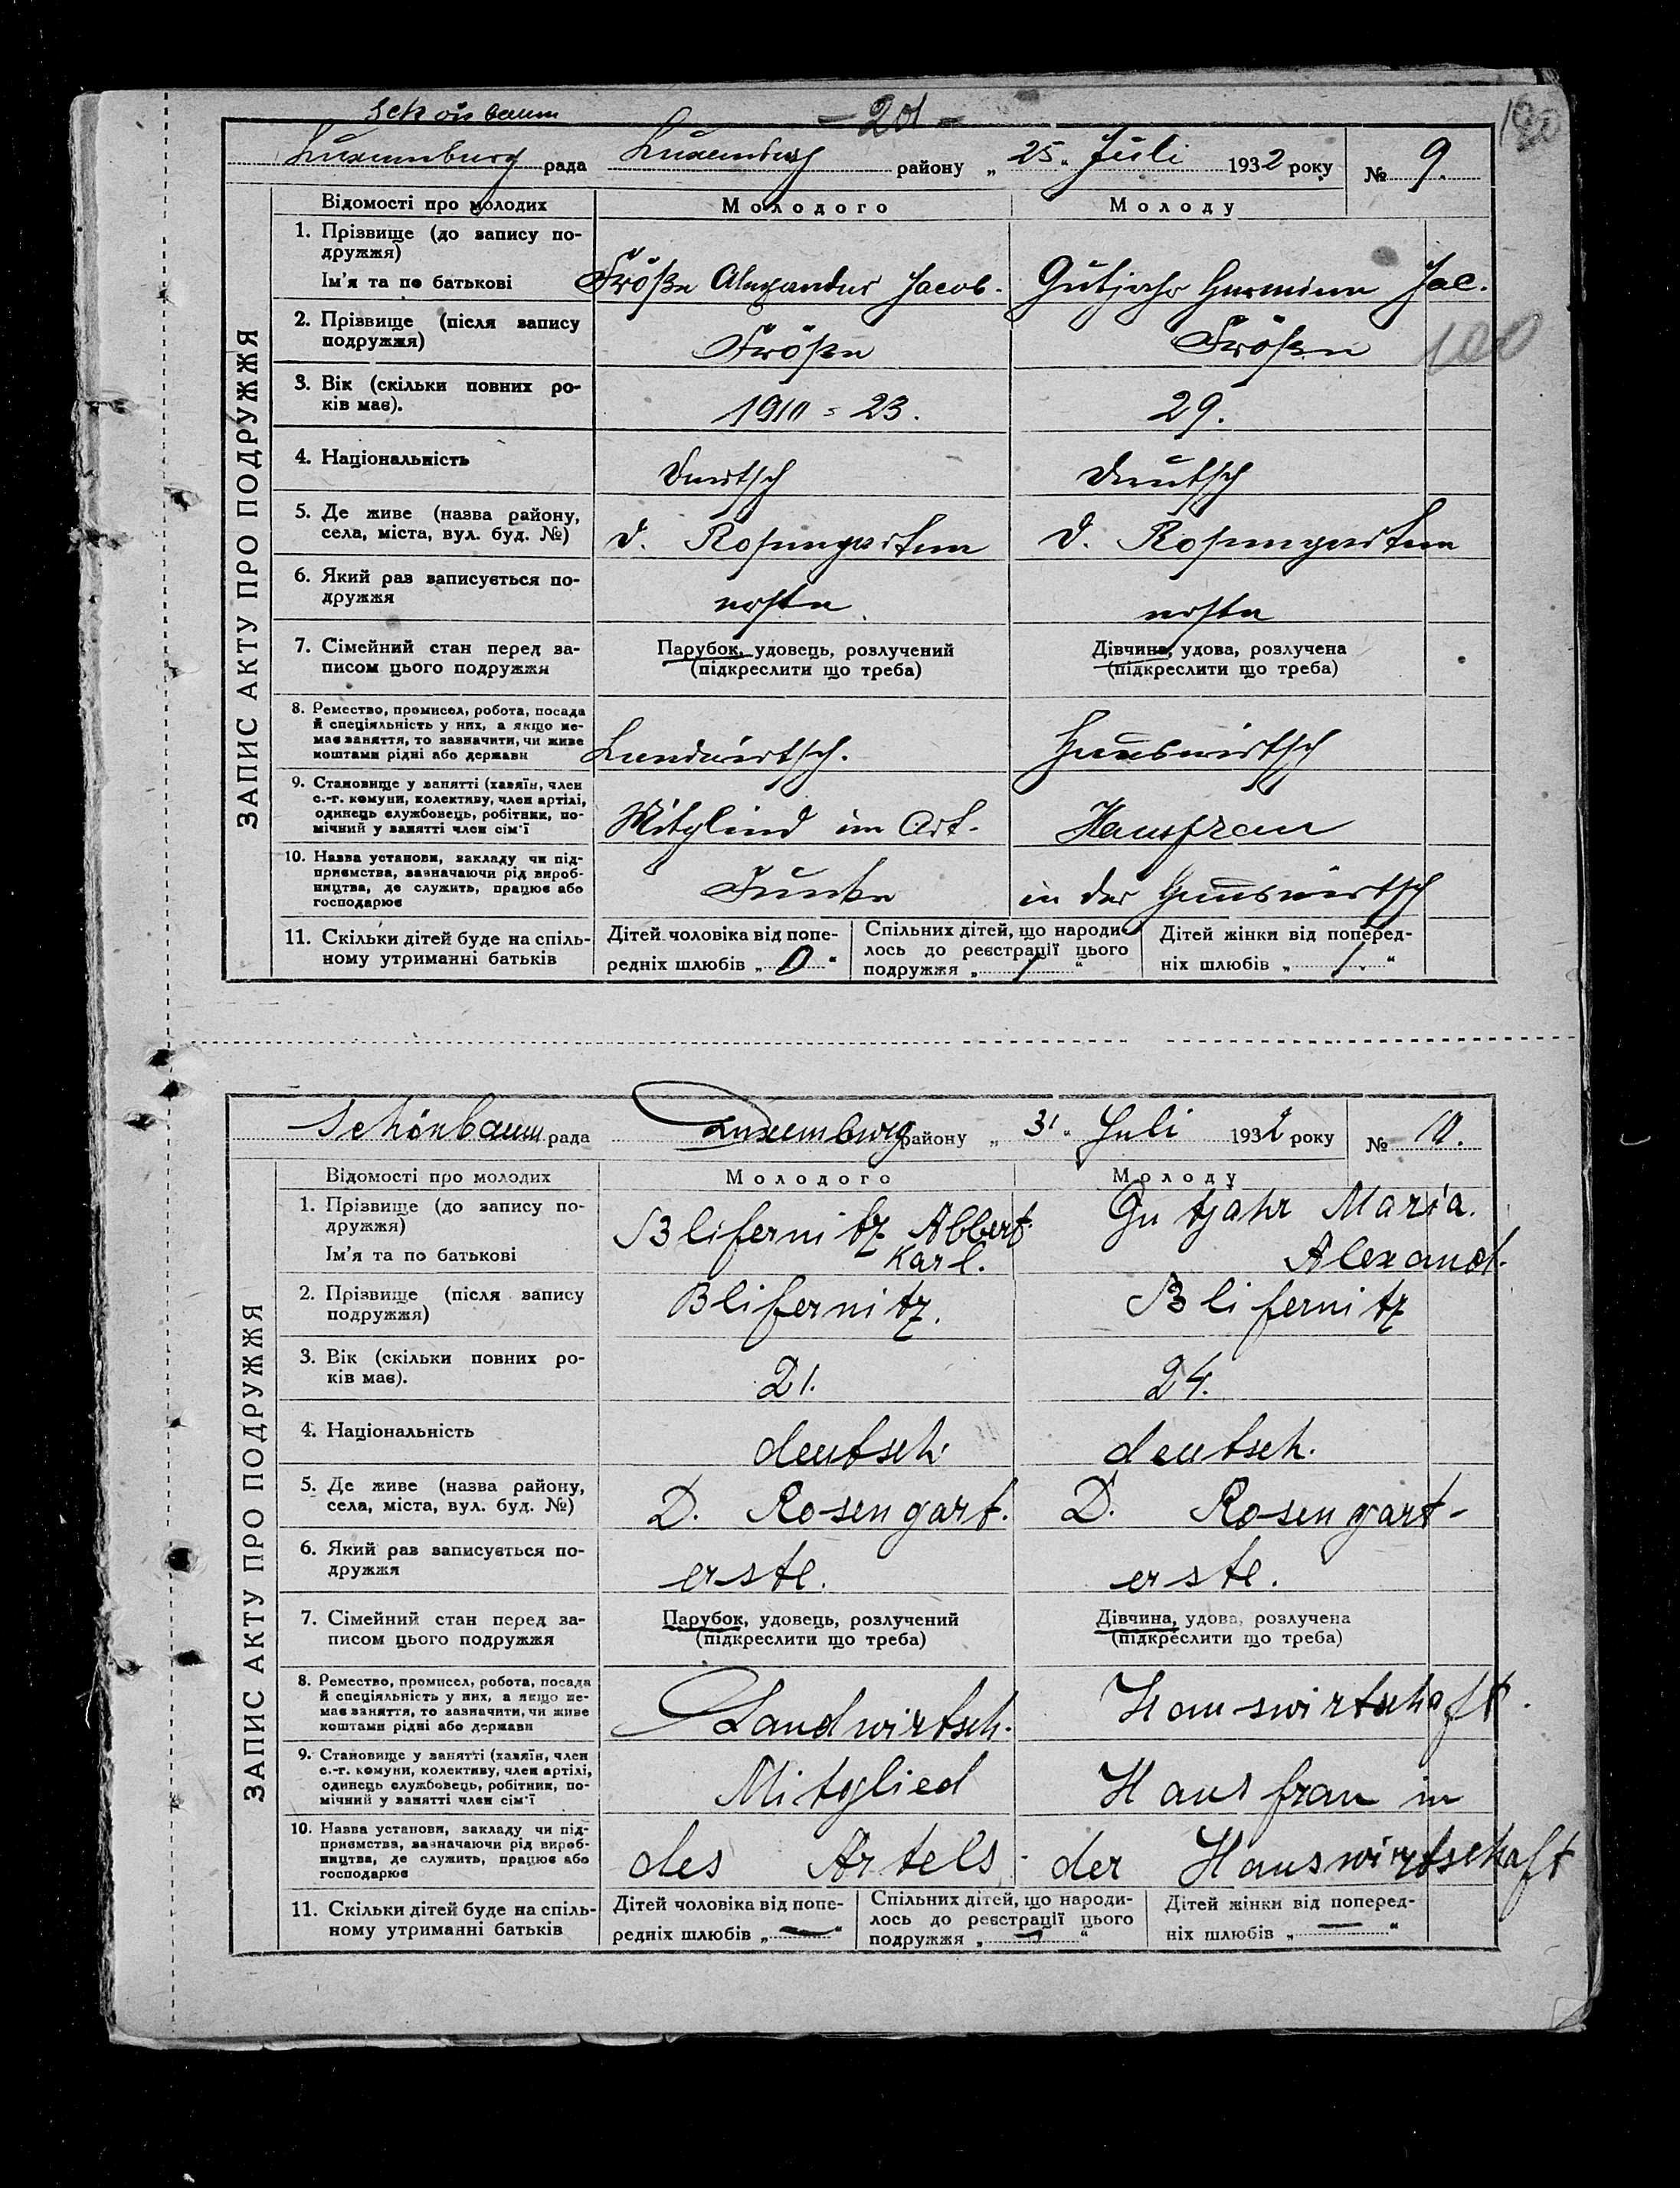 Schönbaum
- 20 -
Luxemburg рада Luxemburg району „ 25 " Juli 1932 року № 9.
Відомості про молодих Молодого Молоду
1. Прізвище (до запису по-
дружжя)
Ім'я та по батькові Fröße Alexander Jacob. Gutjahr Hermine Jac.
2. Прізвище (після запису
подружжя) Fröße Fröße
100
3. Вік (скільки повних ро-
ків має). 1910 = 23. 29.
4. Національність Deutsch Deutsch
5. Де живе (назва району,
села, міста, вул. буд. №) D. Rosengarten D. Rosengarten
6. Який раз записується по-
дружжя erste erste
7. Сімейний стан перед за-
писом цього подружжя
Парубок, удовець, розлучений
(підкреслити що треба)
Дівчина, удова, розлучена
(підкреслити що треба)
8. Ремество, промисел, робота, посада
й спеціяльність у них, а якщо не-
має заняття, то зазначити, чи живе
коштами рідні або держави Landwirtsch. Hauswirtsch
9. Становище у занятті (хазяїн, член
с.-г. комуни, колективу, член артілі,
одинець службовець, робітник, по-
мічний у занятті член сім'ї Mitglied im Art. Hausfrau
10. Назва установи, закладу чи під-
приємства, зазначаючи рід вироб-
ництва, де служить, працює або
господарює in der Hauswirtsch
11. Скільки дітей буде на спіль-
ному утриманні батьків
Дітей чоловіка від попе-
редніх шлюбів „ 0 "
Спільних дітей, що народи-
лось до реєстрації цього
подружжя „ / "
Дітей жінки від поперед-
ніх шлюбів „ /. "
ЗАПИС АКТУ ПРО ПОДРУЖЖЯ
Schönbaum рада Luxemburg району „ 31 " Juli 1932 року № 10.
Відомості про молодих Молодого Молоду
1. Прізвище (до запису по-
дружжя)
Ім'я та по батькові
Blifernitz Albert
Karl.
Gutjahr Maria.
Alexand.
2. Прізвище (після запису
подружжя) Blifernitz. Blifernitz
3. Вік (скільки повних ро-
ків має). 21. 24.
4. Національність deutsch. deutsch.
5. Де живе (назва району,
села, міста, вул. буд. №) D. Rosengart. D. Rosengart-
6. Який раз записується по-
дружжя erste. erste.
7. Сімейний стан перед за-
писом цього подружжя
Парубок, удовець, розлучений
(підкреслити що треба)
Дівчина, удова, розлучена
(підкреслити що треба)
8. Ремество, промисел, робота, посада
й спеціяльність у них, а якщо не-
має заняття, то зазначити, чи живе
коштами рідні або держави Landwirtsch. Hauswirtschaft.
9. Становище у занятті (хазяїн, член
с.-г. комуни, колективу, член артілі,
одинець службовець, робітник, по-
мічний у занятті член сім'ї Mitglied Hausfrau in
10. Назва установи, закладу чи під-
приємства, зазначаючи рід вироб-
ництва, де служить, працює або
господарює des Artels. der Hauswirtschaft
11. Скільки дітей буде на спіль-
ному утриманні батьків
Дітей чоловіка від попе-
редніх шлюбів „ — "
Спільних дітей, що народи-
лось до реєстрації цього
подружжя „ — "
Дітей жінки від поперед-
ніх шлюбів „ — "
ЗАПИС АКТУ ПРО ПОДРУЖЖЯ